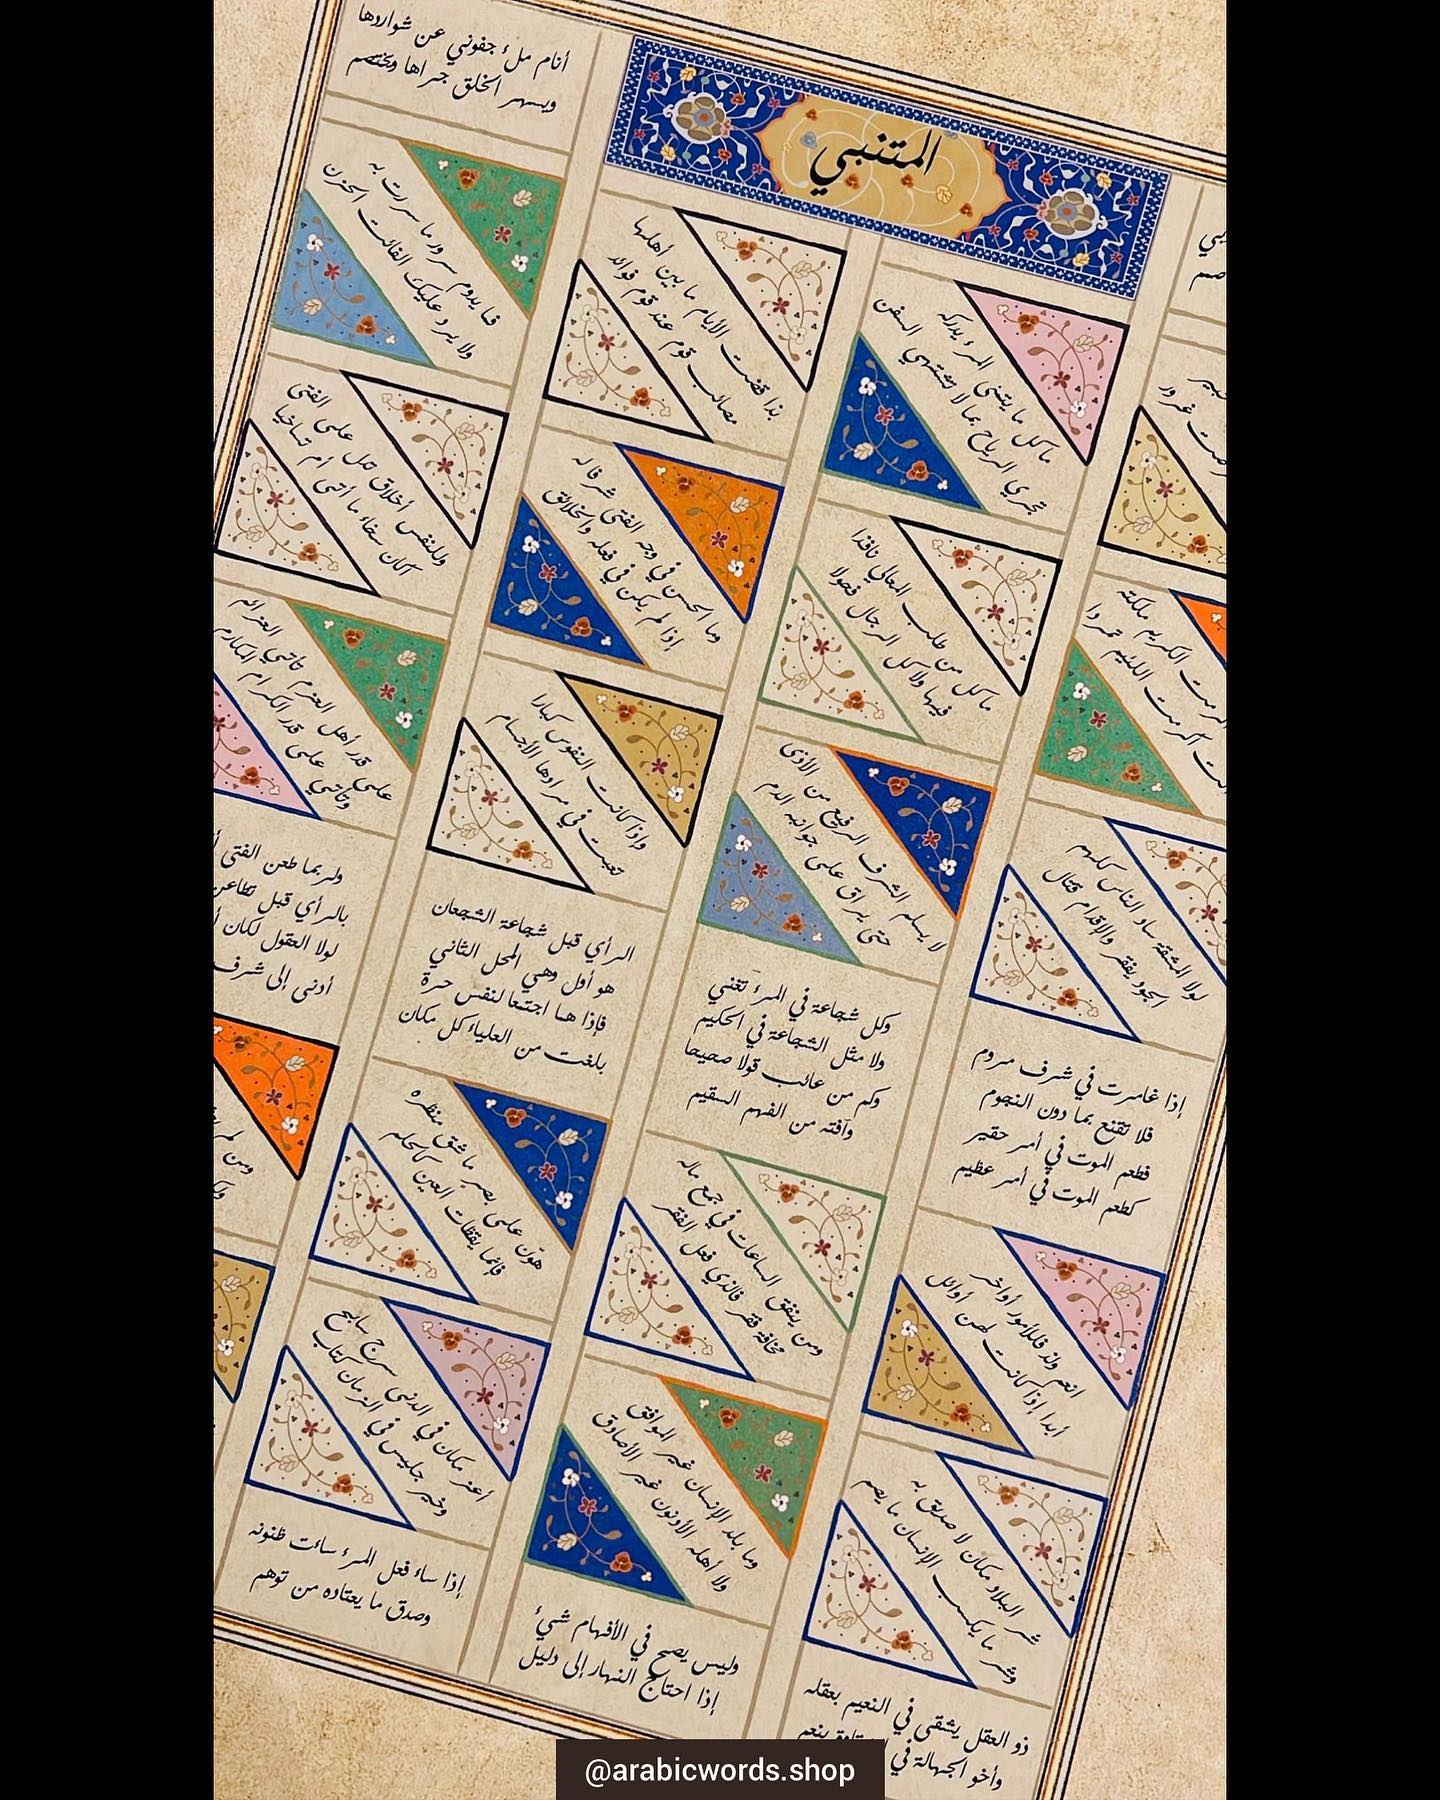 المتنبي
إذا غامرت في شرف مروم
فلا تقنع بما دون النجوم
فطعم الموت في أمر حقير
كطعم الموت في أمر عظيم
لولا المشقة ساد الناس كلهم
الجود يفقر والإقدام قتال
انعم ولذ فللأمور أواخر
أبدا إذا كانت لهن أوائل
شر البلاد مكان لا صديق به
وشر ما يكسب الإنسان ما يصم
ذو العقل يشقى في النعيم بعقله
وأخو الجهالة في ينعم
ما كل ما يتمنى المرء يدركه
تجري الرياح بما لا تشتهي السفن
ما كل من طلب المعالي نافذا
فيها ولا كل الرجال فحولا
لا يسلم الشرف الرفيع من الأذى
حتى يراق على جوانبه الدم
وكل شجاعة في المرء تغني
ولا مثل الشجاعة في الحكيم
وكم من عائب قولا صحيحا
وآفته من الفهم السقيم
ومن ينفق الساعات في جمع ماله
مخافة فقر فالذي فعل الفقر
وما بلد الإنسان غير الموافق
ولا أهله الأدنون غير الأصادق
وليس يصح في الأفهام شيء
إذا احتاج النهار إلى دليل
بذا قضت الأيام ما بين أهلها
مصائب قوم عند قوم فوائد
وما الحسن في وجه الفتى شرفا له
إذا لم يكن في فعله والخلائق
وإذا كانت النفوس كبارا
تعبت في مرادها الأجسام
الرأي قبل شجاعة الشجعان
هو أول وهي المحل الثاني
فإذا هما اجتمعا لنفس حرة
بلغت من العلياء كل مكان
هون على بصر ما شق منظره
فإنما يقظات العين كالحلم
أعز مكان في الدنى سرج سابح
وخير جليس في الزمان كتاب
إذا ساء فعل المرء ساءت ظنونه
وصدق ما يعتاده من توهم
أنام ملء جفوني عن شواردها
ويسهر الخلق جراها ويختصم
فما يدوم سرور ما سررت به
ولا يرد عليك الفائت الحزن
وللنفس أخلاق تدل على الفتى
أكان سخاء ما أتى أم تساخيا
على قدر أهل العزم تأتي العزائم
وتأتي على قدر الكرام المكارم
ولربما طعن الفتى
بالرأي قبل تطاعن
لولا العقول لكان
أدنى إلى شرف
@arabicwords.shop